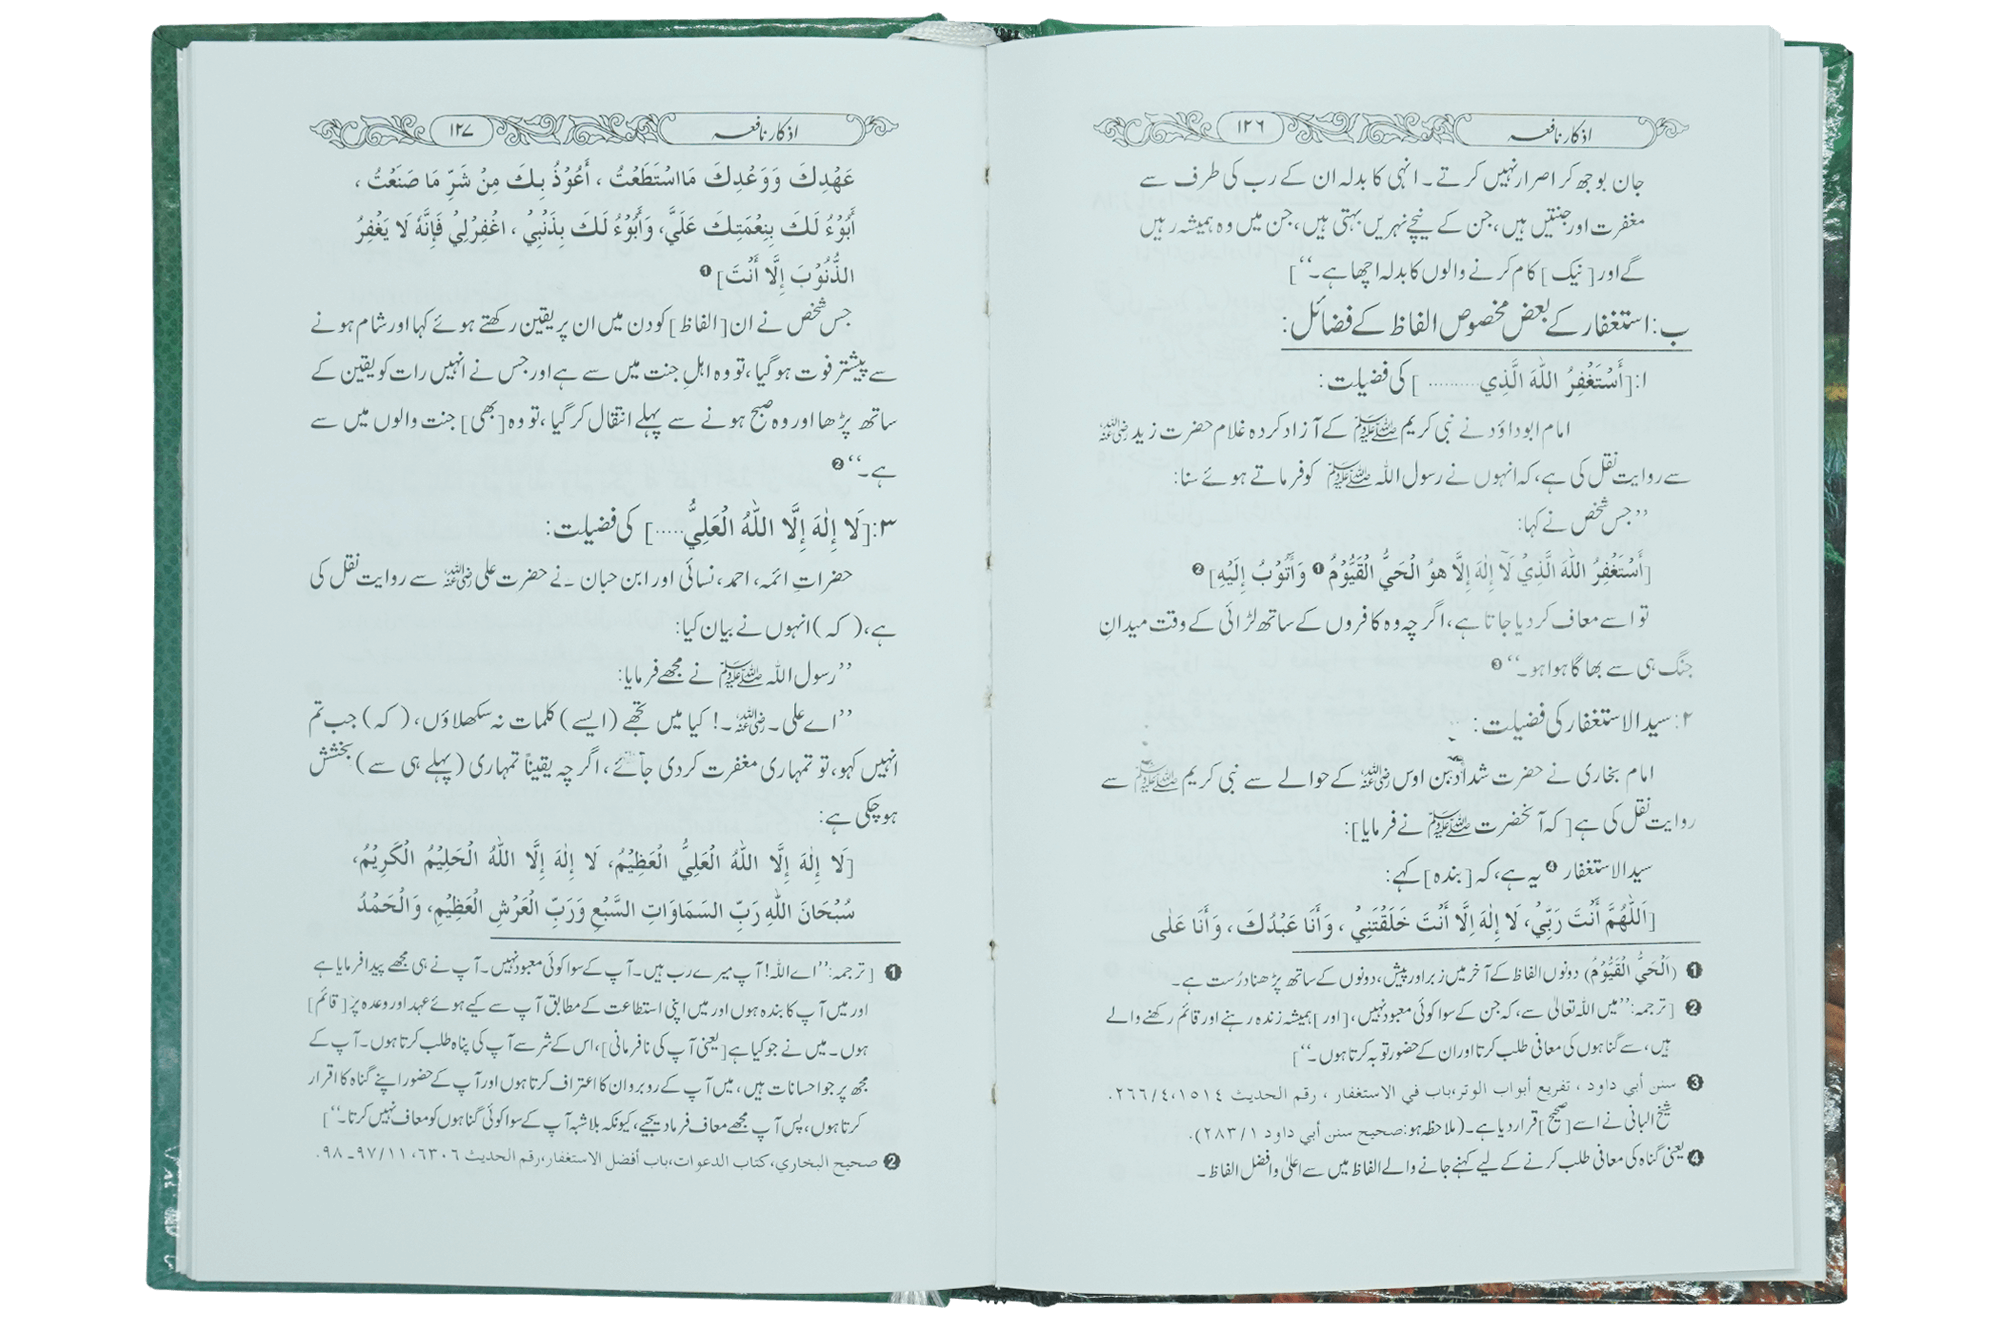 اذکار نافعہ
۱۲۶
جان بوجھ کر اصرار نہیں کرتے۔ انہی کا بدلہ ان کے رب کی طرف سے
مغفرت اور جنتیں ہیں، جن کے نیچے نہریں بہتی ہیں، جن میں وہ ہمیشہ رہیں
گے اور [نیک] کام کرنے والوں کا بدلہ اچھا ہے۔‘‘]
ب: استغفار کے بعض مخصوص الفاظ کے فضائل:
۱:[أَسْتَغْفِرُ اللّٰهَ الَّذِي.......... ] کی فضیلت:
امام ابوداؤد نے نبی کریم ﷺ کے آزاد کردہ غلام حضرت زید رضی اللہ عنہ
سے روایت نقل کی ہے، کہ انہوں نے رسول اللہ ﷺ کو فرماتے ہوئے سنا:
’’جس شخص نے کہا:
[أَسْتَغْفِرُ اللّٰهَ الَّذِيْ لَآ إِلٰهَ إِلَّا هوُ الْحَيُّ الْقَيُّوْمُ ❶ وَأَتُوْبُ إِلَيْهِ] ❷
تو اسے معاف کر دیا جاتا ہے، اگرچہ وہ کافروں کے ساتھ لڑائی کے وقت میدانِ
جنگ ہی سے بھاگا ہوا ہو۔‘‘ ❸
۲: سید الاستغفار کی فضیلت:
امام بخاری نے حضرت شداد بن اوس رضی اللہ عنہ کے حوالے سے نبی کریم ﷺ سے
روایت نقل کی ہے [کہ آنحضرت ﷺ نے فرمایا]:
سید الاستغفار ❹ یہ ہے، کہ [بندہ] کہے:
[اَللّٰهُمَّ أَنْتَ رَبِّيْ، لَا إِلٰهَ إِلَّا أَنْتَ خَلَقْتَنِيْ ، وَأَنَا عَبْدُكَ ، وَأَنَا عَلٰى
❶ (اَلْحَيُّ الْقَيُّوْمُ) دونوں الفاظ کے آخر میں زبر اور پیش، دونوں کے ساتھ پڑھنا درُست ہے۔
❷ [ترجمہ: ’’میں اللہ تعالیٰ سے، کہ جن کے سوا کوئی معبود نہیں، [اور] ہمیشہ زندہ رہنے اور قائم رکھنے والے
ہیں، سے گناہوں کی معافی طلب کرتا اور ان کے حضور توبہ کرتا ہوں۔‘‘]
❸ سنن أبي داود ، تفريع أبواب الوتر،باب في الاستغفار ، رقم الحديث ١٥١٤،٢٦٦/٤.
شیخ البانی نے اسے [صحیح] قرار دیا ہے۔ (ملاحظہ ہو: صحيح سنن أبي داود ٢٨٣/١).
❹ یعنی گناہ کی معافی طلب کرنے کے لیے کہنے جانے والے الفاظ میں سے اعلیٰ و افضل الفاظ۔
اذکار نافعہ
۱۲۷
عَهْدِكَ وَوَعْدِكَ مَااسْتَطَعْتُ ، أَعُوْذُ بِكَ مِنْ شَرِّ مَا صَنَعْتُ ،
أَبُوْءُ لَكَ بِنِعْمَتِكَ عَلَيَّ، وَأَبُوْءُ لَكَ بِذَنْبِيْ ، اغْفِرْلِيْ فَإِنَّهُ لَا يَغْفِرُ
الذُّنُوْبَ إِلَّا أَنْتَ] ❶
جس شخص نے ان [الفاظ] کو دن میں ان پر یقین رکھتے ہوئے کہا اور شام ہونے
سے پیشتر فوت ہو گیا، تو وہ اہلِ جنت میں سے ہے اور جس نے انہیں رات کو یقین کے
ساتھ پڑھا اور وہ صبح ہونے سے پہلے انتقال کر گیا، تو وہ [بھی] جنت والوں میں سے
ہے۔‘‘ ❷
۳:[لَا إِلٰهَ إِلَّا اللّٰهُ الْعَلِيُّ.....] کی فضیلت:
حضراتِ ائمہ، احمد، نسائی اور ابن حبان ۔نے حضرت علی رضی اللہ عنہ سے روایت نقل کی
ہے، (کہ) انہوں نے بیان کیا:
’’رسول اللہ ﷺ نے مجھے فرمایا:
’’اے علی ۔ رضی اللہ عنہ ۔! کیا میں تجھے (ایسے) کلمات نہ سکھلاؤں، (کہ) جب تم
انہیں کہو، تو تمہاری مغفرت کر دی جائے، اگرچہ یقیناً تمہاری (پہلے ہی سے) بخشش
ہو چکی ہے:
[لَا إِلٰهَ إِلَّا اللّٰهُ الْعَلِيُّ الْعَظِيْمُ، لَا إِلٰهَ إِلَّا اللّٰهُ الْحَلِيْمُ الْكَرِيْمُ،
سُبْحَانَ اللّٰهِ رَبِّ السَمَاوَاتِ السَّبْعِ وَرَبِّ الْعَرْشِ الْعَظِيْمِ، وَالْحَمْدُ
❶ [ترجمہ: ’’اے اللہ! آپ میرے رب ہیں۔ آپ کے سوا کوئی معبود نہیں۔ آپ نے ہی مجھے پیدا فرمایا ہے
اور میں آپ کا بندہ ہوں اور میں اپنی استطاعت کے مطابق آپ سے کیے ہوئے عہد اور وعدہ پر [قائم]
ہوں۔ میں نے جو کیا ہے [یعنی آپ کی نافرمانی]، اس کے شر سے آپ کی پناہ طلب کرتا ہوں۔ آپ کے
مجھ پر جو احسانات ہیں، میں آپ کے روبرو ان کا اعتراف کرتا ہوں اور آپ کے حضور اپنے گناہ کا اقرار
کرتا ہوں، پس آپ مجھے معاف فرما دیجیے، کیونکہ بلاشبہ آپ کے سوا کوئی گناہوں کو معاف نہیں کرتا۔‘‘]
❷ صحيح البخاري، كتاب الدعوات،باب أفضل الاستغفار،رقم الحديث ٦٣٠٦، ٩٧/١١ـ ٩٨.